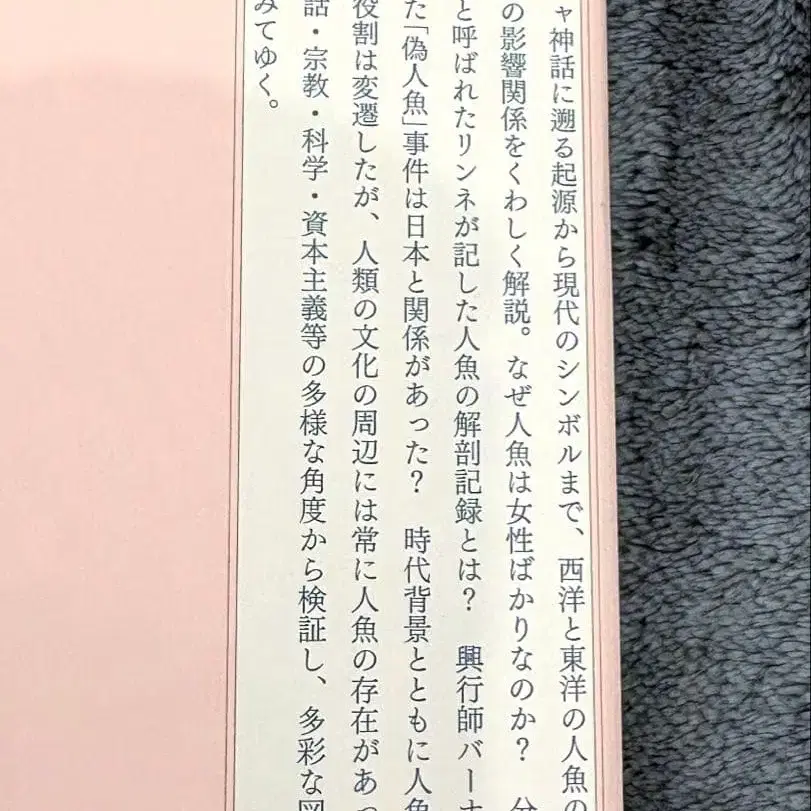 ャ神話に遡る起源から現代のシンボルまで、西洋と東洋の人魚の
の影響関係をくわしく解説。なぜ人魚は女性ばかりなのか？　分
と呼ばれたリンネが記した人魚の解剖記録とは？　興行師バーナ
た「偽人魚」事件は日本と関係があった？　時代背景とともに人魚
役割は変遷したが、人類の文化の周辺には常に人魚の存在があっ
話・宗教・科学・資本主義等の多様な角度から検証し、多彩な図
みてゆく。